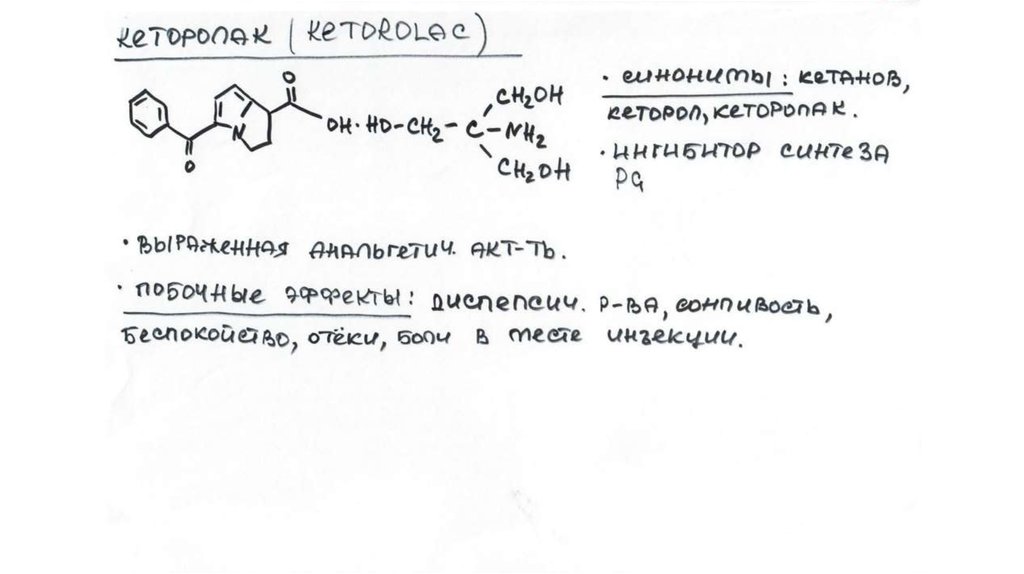 Кеторолак (Ketorolac)
O
CH₂OH
OH · HO-CH₂-C-NH₂
N
O
CH₂OH
· Синонимы: Кетанов,
Кеторол, Кеторолак.
· Ингибитор синтеза
PG
· Выраженная анальгетич. акт-ть.
· Побочные эффекты: диспепсич. р-ва, сонливость,
беспокойство, отёки, боли в месте инъекции.